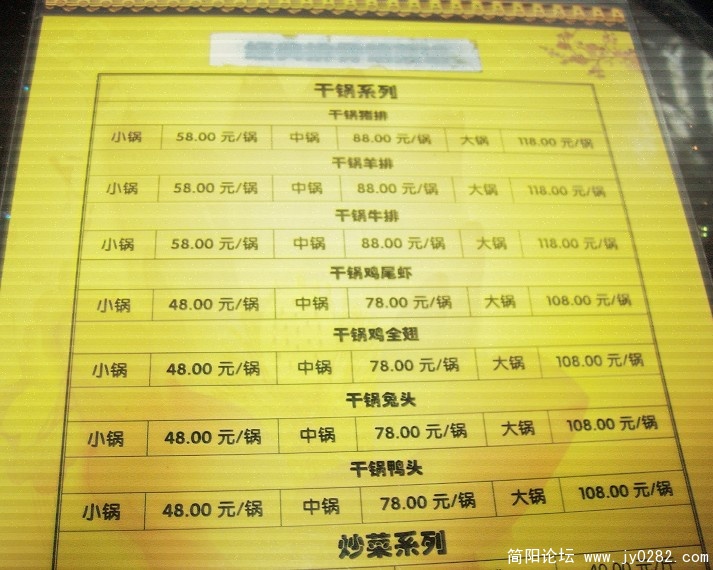 干锅系列
干锅猪排
小锅 58.00 元/锅 中锅 88.00 元/锅 大锅 118.00 元/锅
干锅羊排
小锅 58.00 元/锅 中锅 88.00 元/锅 大锅 118.00 元/锅
干锅牛排
小锅 58.00 元/锅 中锅 88.00 元/锅 大锅 118.00 元/锅
干锅鸡尾虾
小锅 48.00 元/锅 中锅 78.00 元/锅 大锅 108.00 元/锅
干锅鸡全翅
小锅 48.00 元/锅 中锅 78.00 元/锅 大锅 108.00 元/锅
干锅兔头
小锅 48.00 元/锅 中锅 78.00 元/锅 大锅 108.00 元/锅
干锅鸭头
小锅 48.00 元/锅 中锅 78.00 元/锅 大锅 108.00 元/锅
炒菜系列
简阳论坛 www.jy0282.com